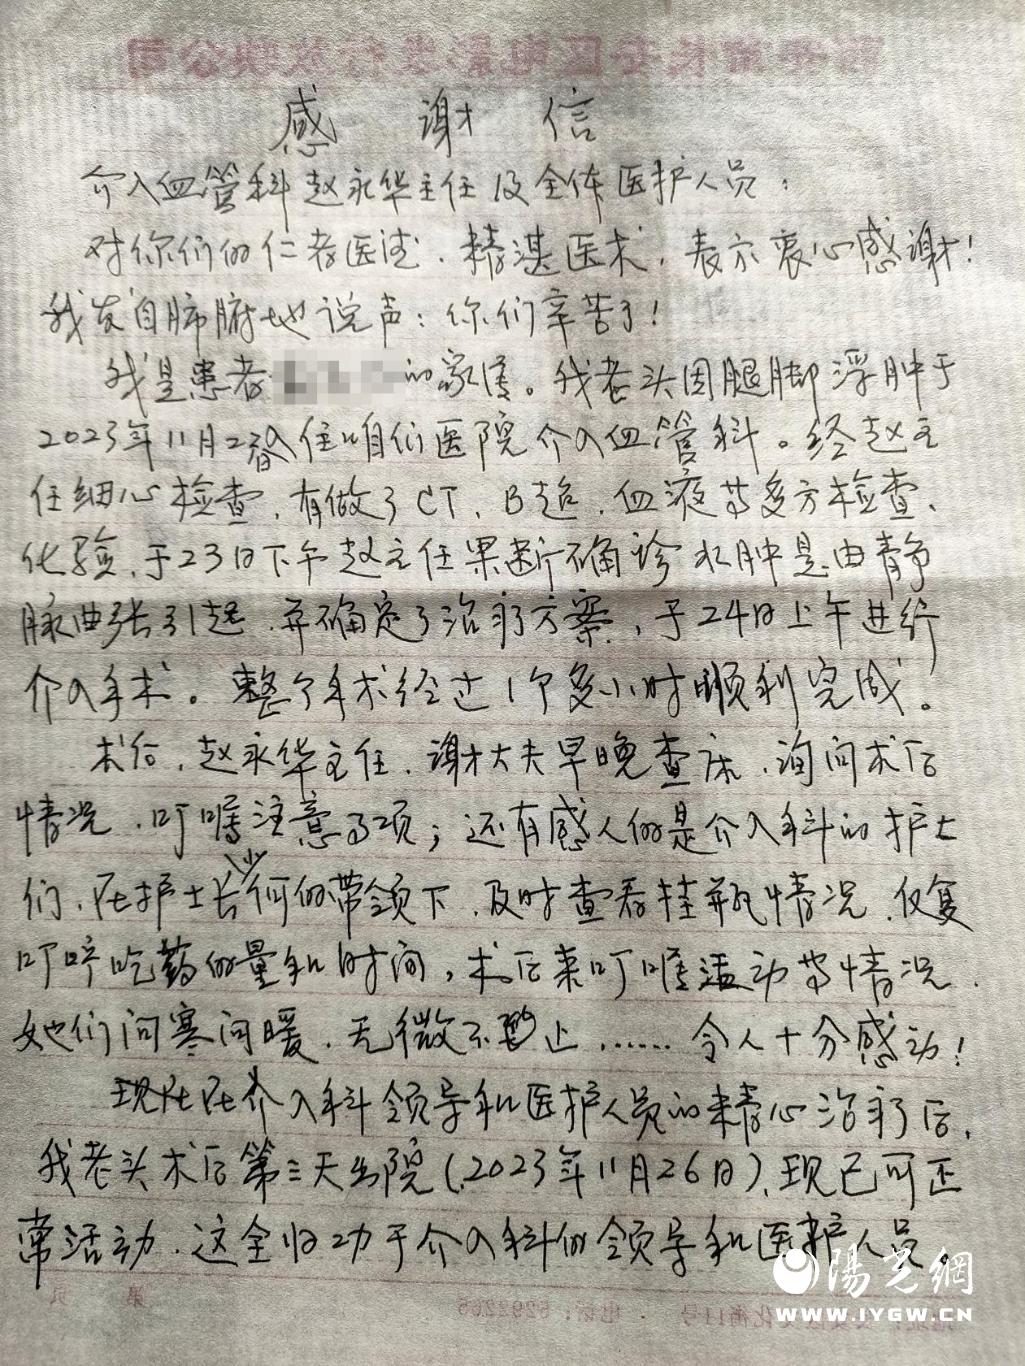 感谢信
介入血管科赵永华主任及全体医护人员:
对你们的仁者医德、精湛医术,表示衷心感谢!
我发自肺腑地说声:你们辛苦了!
我是患者 的家属。我老头因腿脚浮肿于
2023年11月23日入住咱们医院介入血管科。经赵主
任细心检查,有做了CT、B超、血液等多方检查、
化验,于23日下午赵主任果断确诊水肿是由静
脉曲张引起,并确定了治疗方案,于24日上午进行
介入手术。整个手术经过1个多小时顺利完成。
术后,赵永华主任、谢大夫早晚查床、询问术后
情况、叮嘱注意事项;还有感人的是介入科的护士
们,在护士长何的带领下,及时查看挂瓶情况、反复
叮咛吃药的量和时间,术后来叮嘱活动等情况、
她们问寒问暖、无微不至……令人十分感动!
现在在介入科领导和医护人员的精心治疗后,
我老头术后第三天出院(2023年11月26日)、现已可正
常活动、这全归功于介入科的领导和医护人员。
陽光網
WWW.IYGW.CN